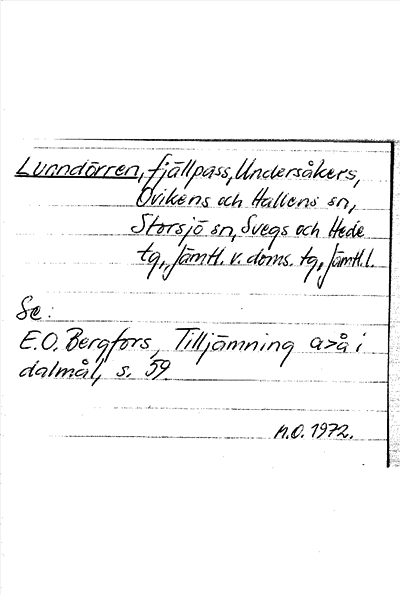 Lunndörren, fjällpass, Undersåkers,
Ovikens och Hallens sn,
Storsjö sn, Svegs och Hede
tg, Jämtl. v. doms. tg, Jämtl. l.
Se:
E.O. Bergfors, Tilljämning a>å i
dalmål, s. 59.
N.O. 1972.